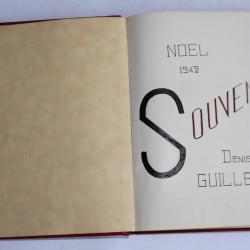 NOEL
1942
SOUVEN
DENIS
GUILLE